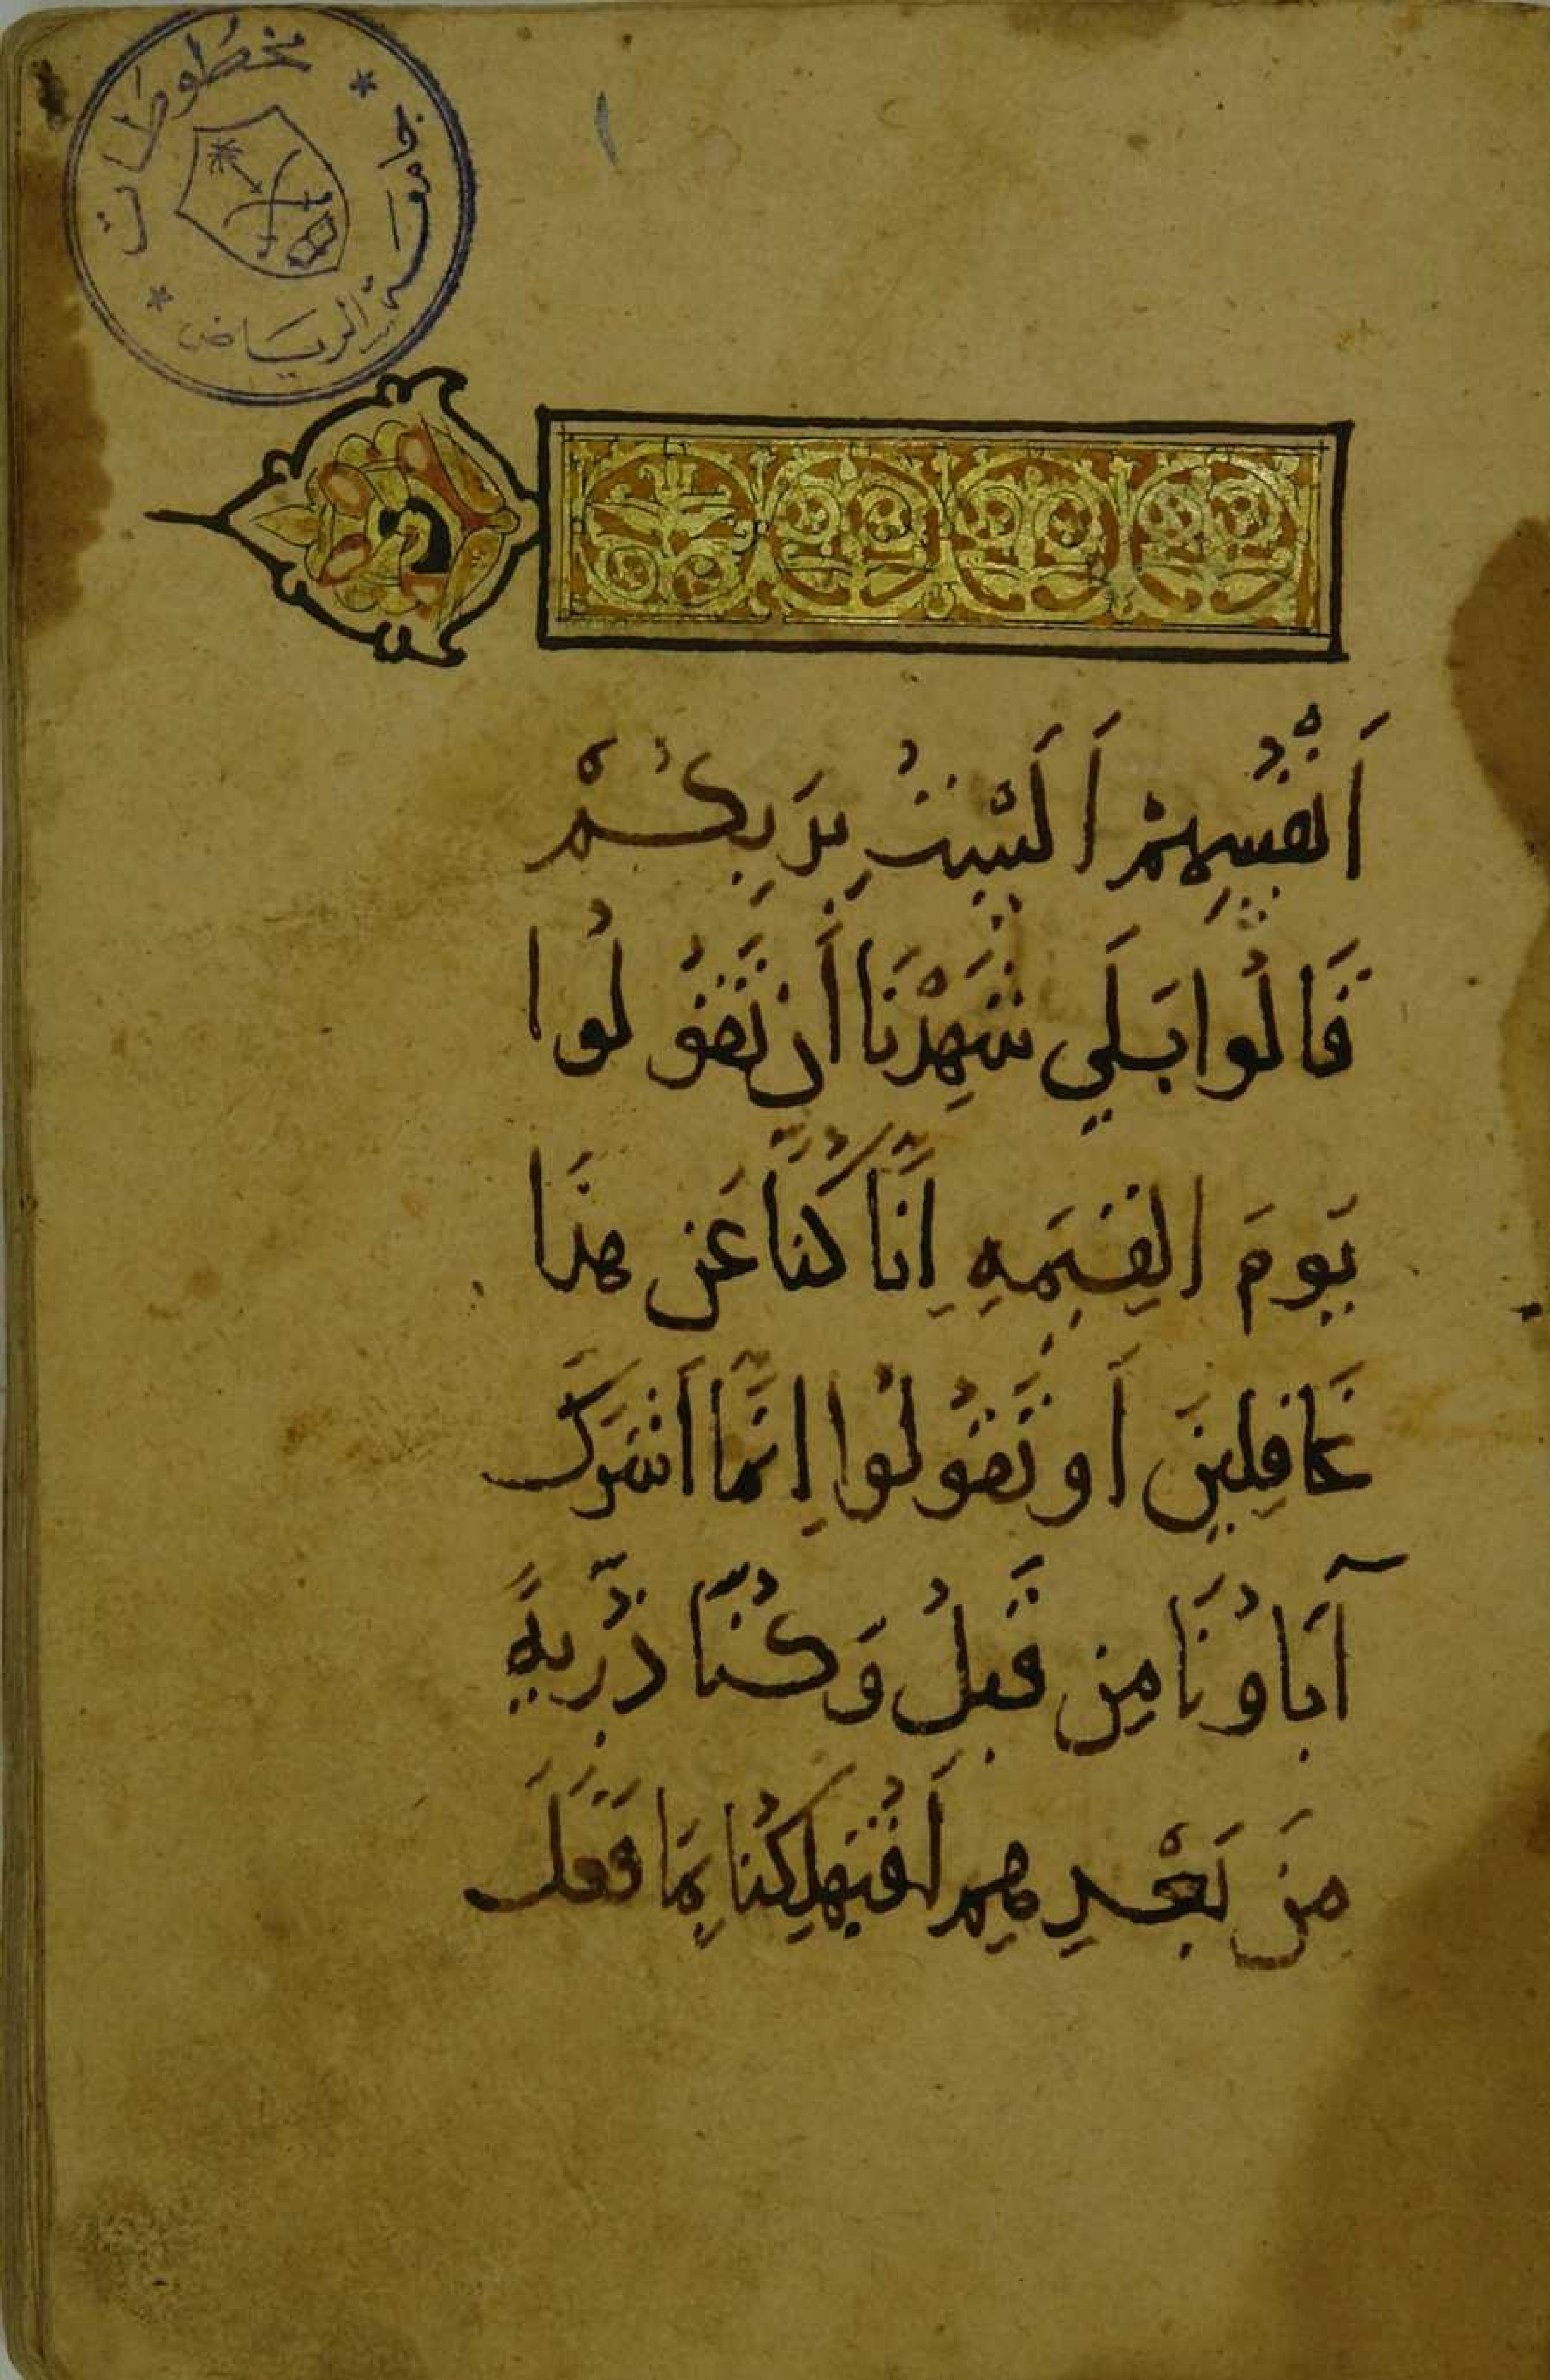 مخطوطات
جامعة الرياض
١
أَنفُسِهِمْ أَلَسْتُ بِرَبِكُمْ
قَالُوا بَلَي شَهِدْنَا أَن تَقُولُوا
يَومَ القِيَمَهِ اِنَّا كُنَّا عَن هذَا
غَافِلِينَ أَو تَقُولُوا اِنَّمَا أَشرَكَ
آبَاوُنَا مِن قَبلُ وَكُنَّا ذُرِّيهً
مِن بَعْدِهِم أَفَتُهلِكُنَا بِمَا فَعَلَ